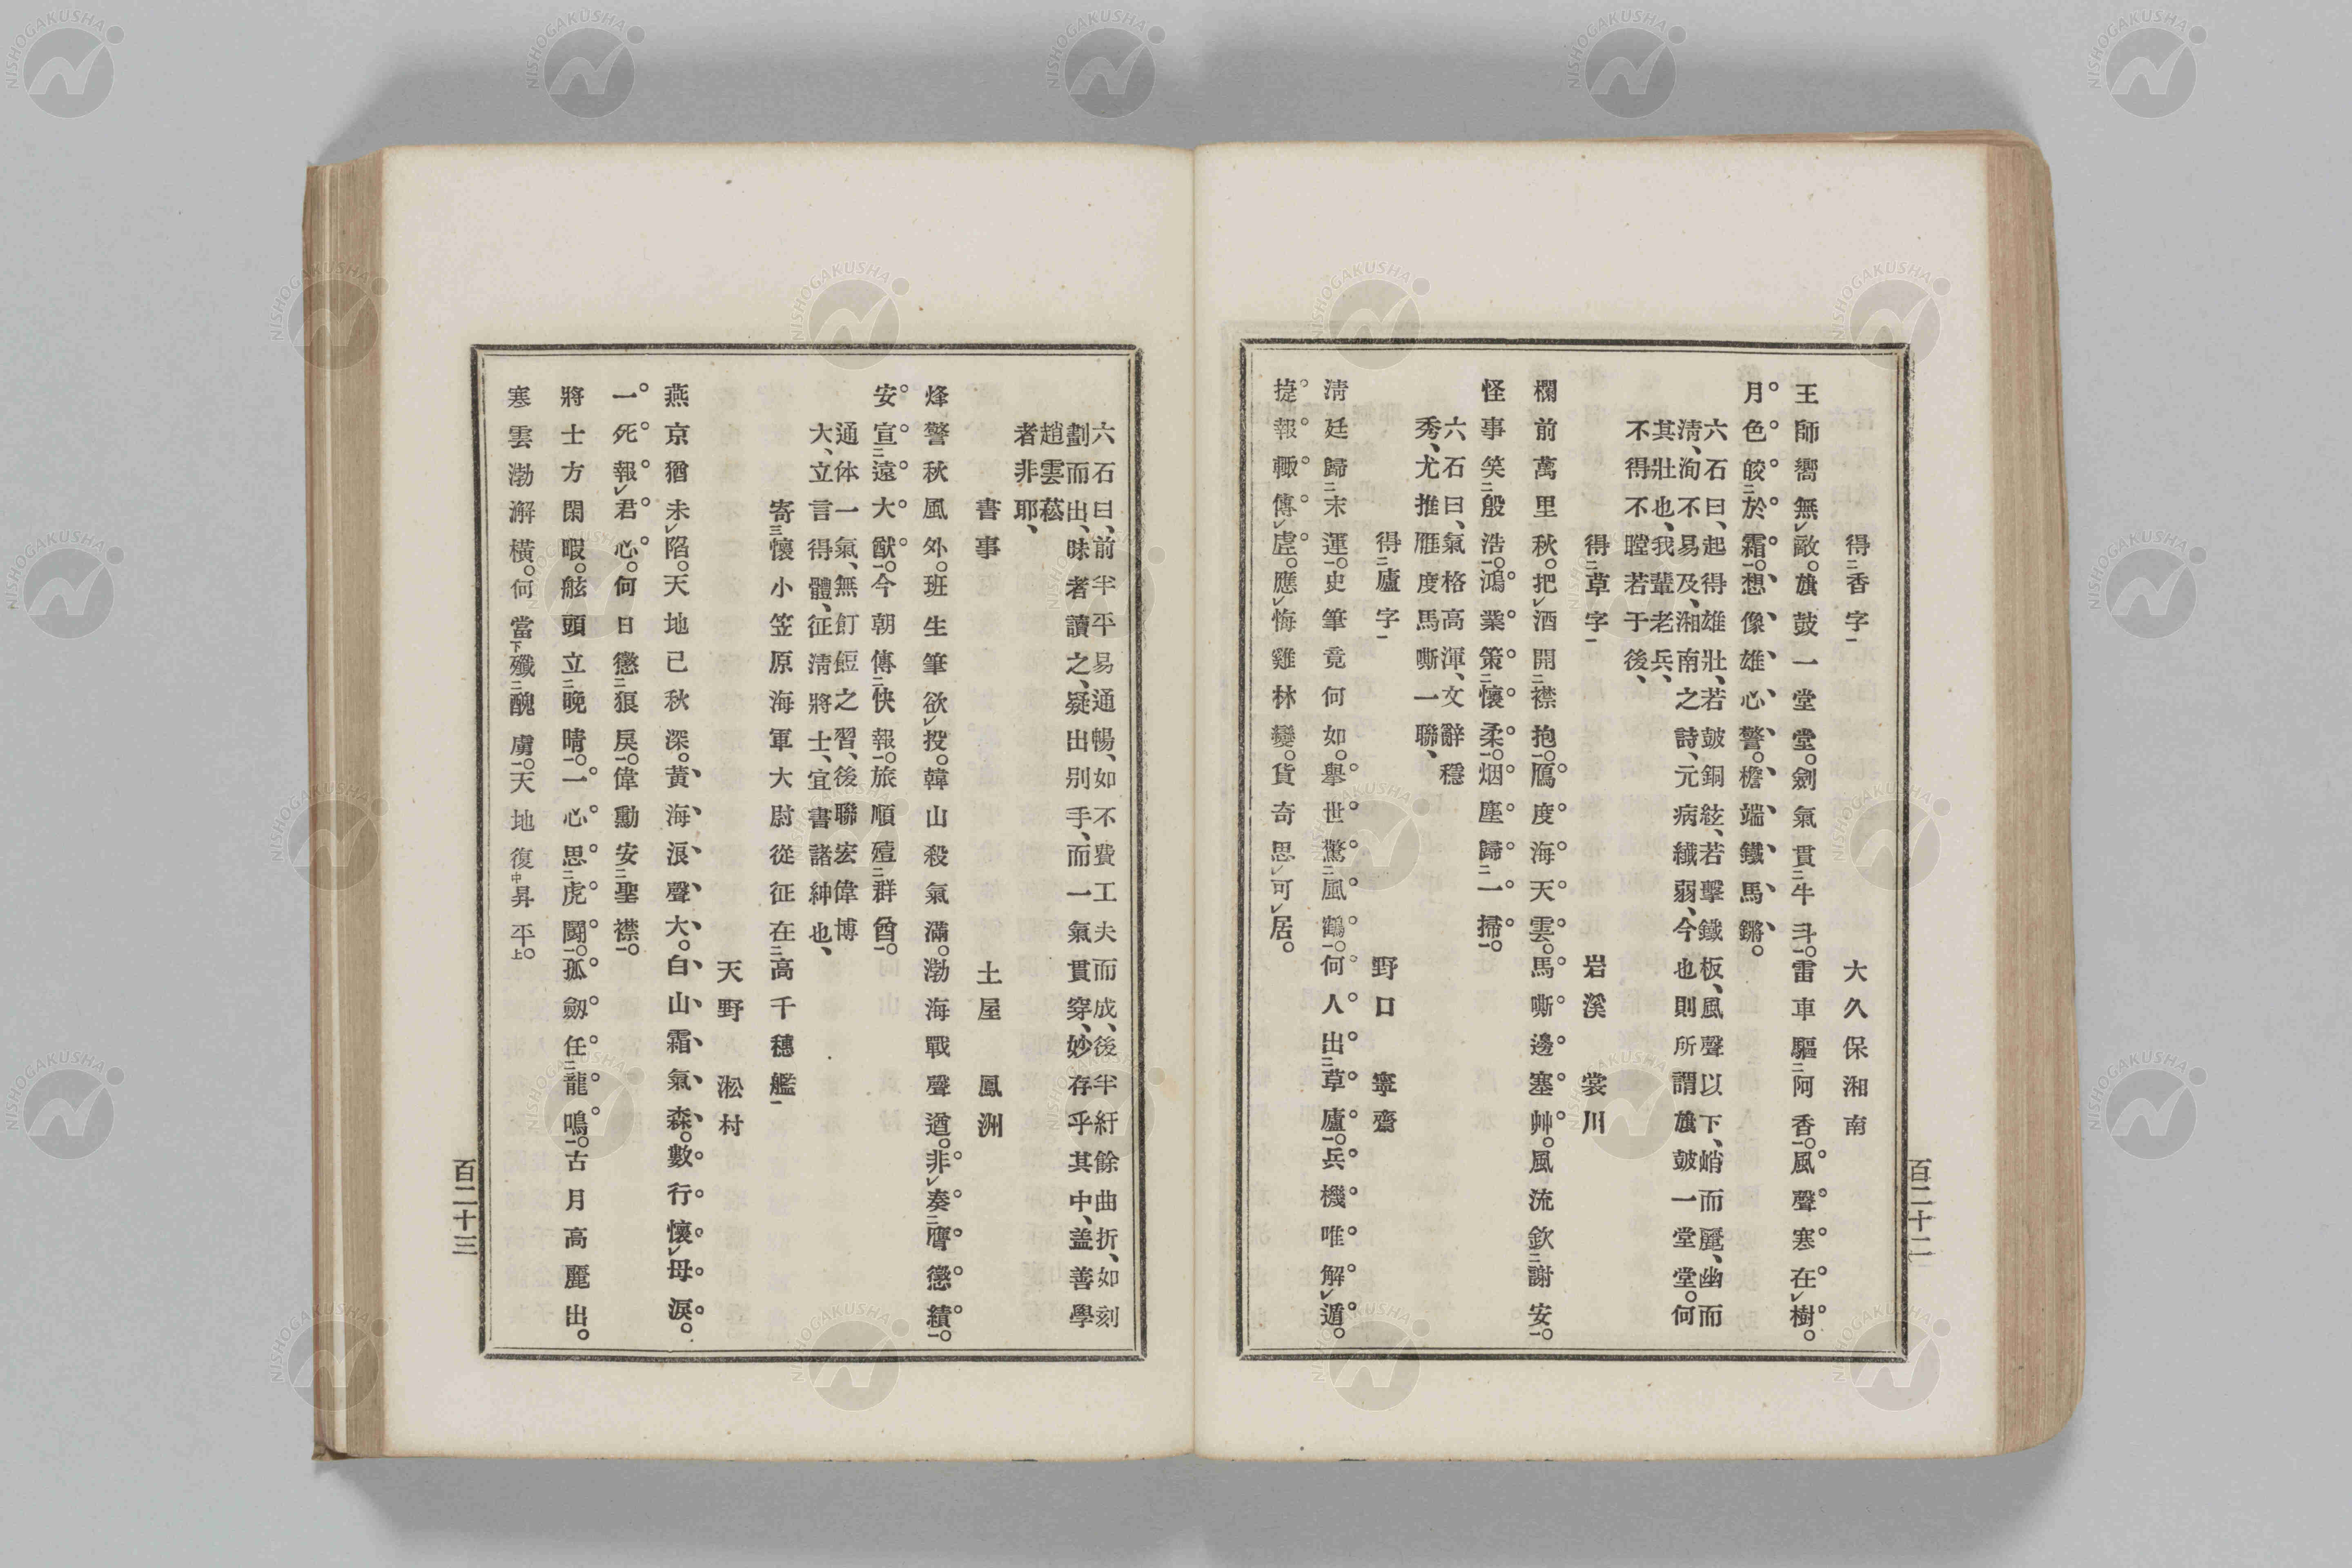 得二香字一　大久保湘南
王師嚮無レ敵。旗鼓一堂堂。劍氣貫二牛斗一。雷車驅二阿香一。風聲寒在レ樹。
月色皎二於霜一。想像雄心警。檐端鐵馬鏘。
六石曰、起得雄壯、若皷銅絃、若擊鐵板、風聲以下、峭而麗、幽而
淸、洵不易及、湘南之詩、元病纎弱、今也則所謂旗皷一堂堂。何
其壯也、我輩老兵、
不得不瞠若于後、
得二草字一　岩溪裳川
欄前萬里秋。把レ酒開二襟抱一。鴈度海天雲。馬嘶邊塞艸。風流欽二謝安一。
怪事笑二殷浩一。鴻業策二懷柔一。烟塵歸二一掃一。
六石曰、氣格高渾、文辭穩
秀、尤推雁度馬嘶一聯、
得二廬字一　野口寧齋
淸廷歸二末運一。史筆竟何如。擧世驚二風鶴一。何人出二草廬一。兵機唯解レ遁。
捷報輙傳レ虛。應レ悔雞林變。貨奇思レ可レ居。
百二十二
六石曰、前半平易通暢、如不費工夫而成、後半紆餘曲折、如刻
劃而出、昧者讀之、疑出別手、而一氣貫穿、妙存乎其中、盖善學
趙雲菘
者非耶、
書事　土屋鳳洲
烽警秋風外。班生筆欲レ投。韓山殺氣滿。渤海戰聲遒。非レ奏二膺懲績一。
安宣二遠大猷一。今朝傳二快報一。旅順殪二群酋一。
通体一氣、無飣餖之習、後聯宏偉博
大、立言得體、征淸將士、宜書諸紳也、
寄三懷小笠原海軍大尉從征在二高千穗艦一
天野淞村
燕京猶未レ陷。天地已秋深。黃海浪聲大。白山霜氣森。數行懷レ母淚。
一死報レ君心。何日懲二狼戾一。偉勳安二聖襟一。
將士方閑暇。舷頭立二晚晴一。一心思二虎鬪一。孤劒任二龍鳴一。古月高麗出。
寒雲渤澥橫。何當下殲二醜虜一。天地復中昇平上。
百二十三